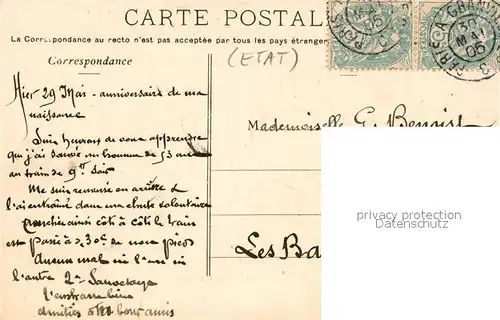 CARTE POSTALE
La Correspondance au recto n'est pas acceptée par tous les pays étrangers
(ETAT)
Correspondance
Hier 29 Mai - anniversaire de ma
naissance
Suis heureux de vous apprendre
que j'ai sauvé un homme de 53 ans
au train de 9h soir
Me suis renversé en arrière &
l'ai entraîné dans une chute volontaire
côte à côte le train
est passé à 30c de nos pieds
Aucun mal ni l'un ni
l'autre 2e Sauvetage
amitiés
Mademoiselle G. Benoist
Les Ba
30
MAI
05
privacy protection
watermark